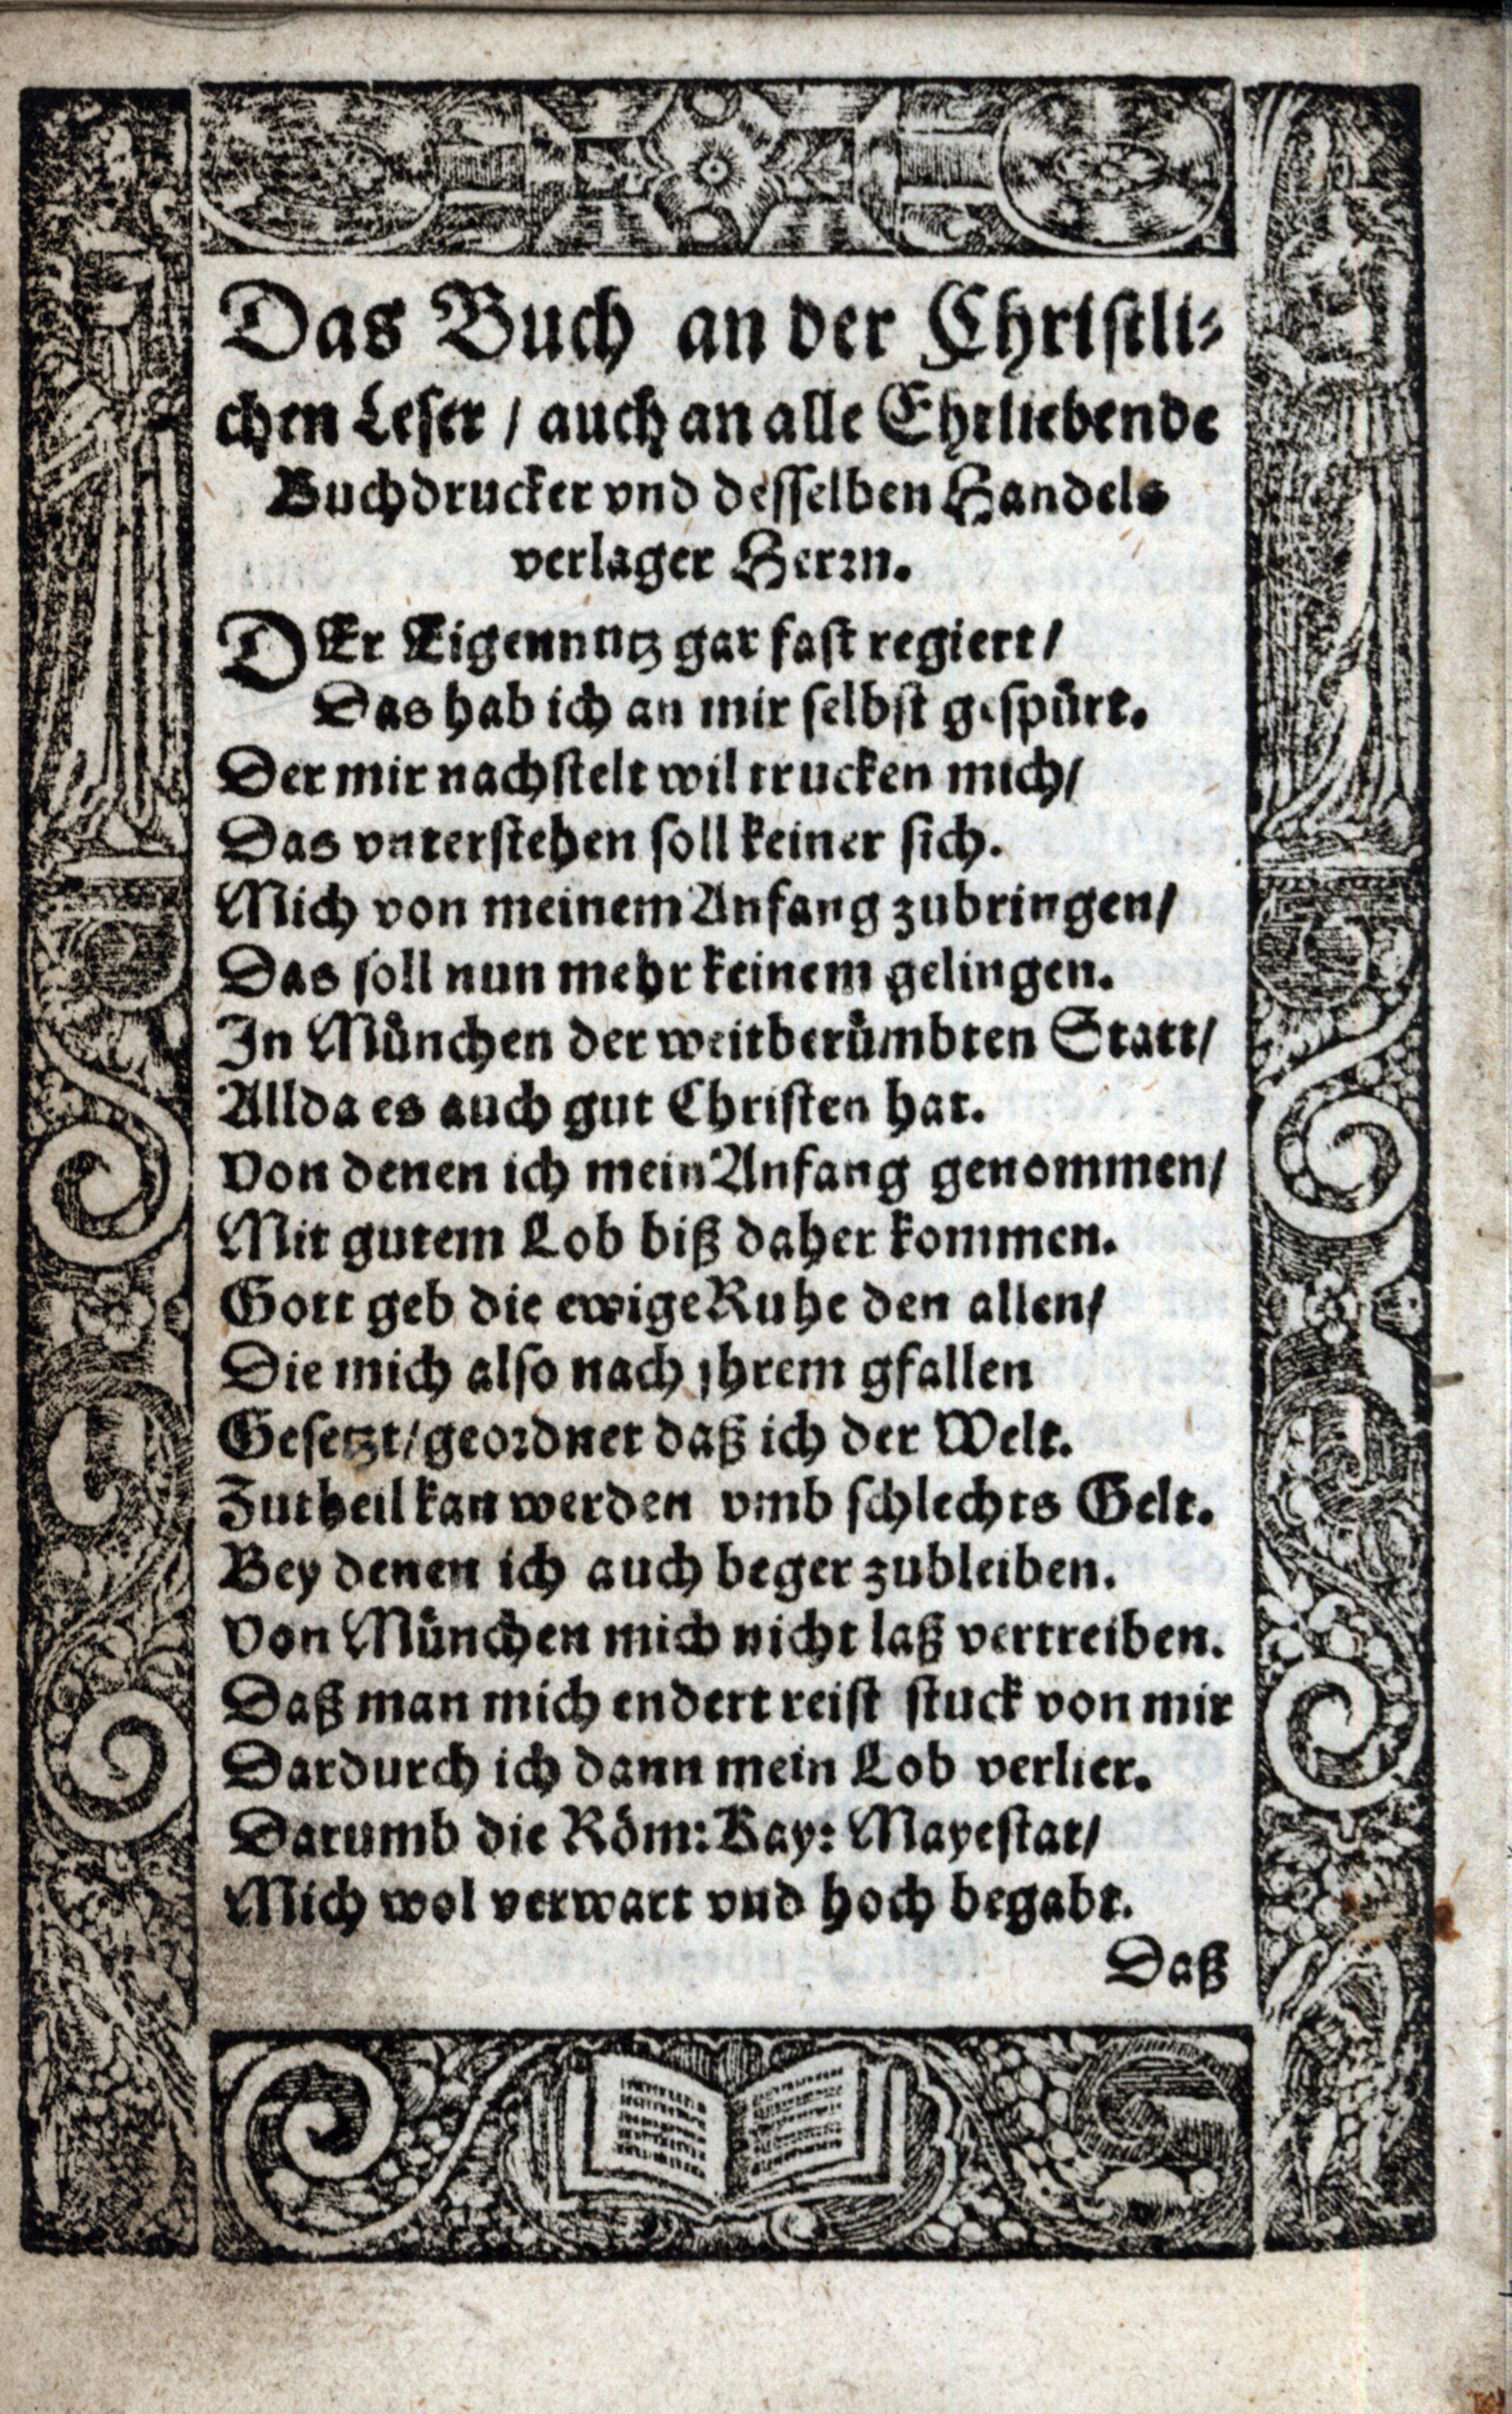 Das Buch an der Christli⸗
chen Leser / auch an alle Ehrliebende
Buchdrucker vnd desselben Handels
verlager Herrn.
DEr Eigennutz gar fast regiert /
Das hab ich an mir selbst gespürt.
Der mir nachstelt wil trucken mich /
Das vnterstehen soll keiner sich.
Mich von meinem Anfang zubringen /
Das soll nun mehr keinem gelingen.
In München der weitberümbten Statt /
Allda es auch gut Christen hat.
Von denen ich mein Anfang genommen /
Mit gutem Lob biß daher kommen.
Gott geb die ewige Ruhe den allen /
Die mich also nach jhrem gfallen
Gesetzt / geordnet daß ich der Welt.
Zutheil kan werden vmb schlechts Gelt.
Bey denen ich auch beger zubleiben.
Von München mich nicht laß vertreiben.
Daß man mich endert reist stuck von mir
Dardurch ich dann mein Lob verlier.
Darumb die Röm: Kay: Mayestat /
Mich wol verwart vnd hoch begabt.
Daß